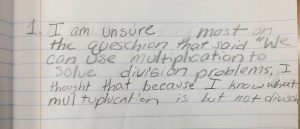 1. I am unsure most on
the queschion that said "We
can use multiplication to
solve division problems, I
thought that because I know what
multuplication is but not divisio